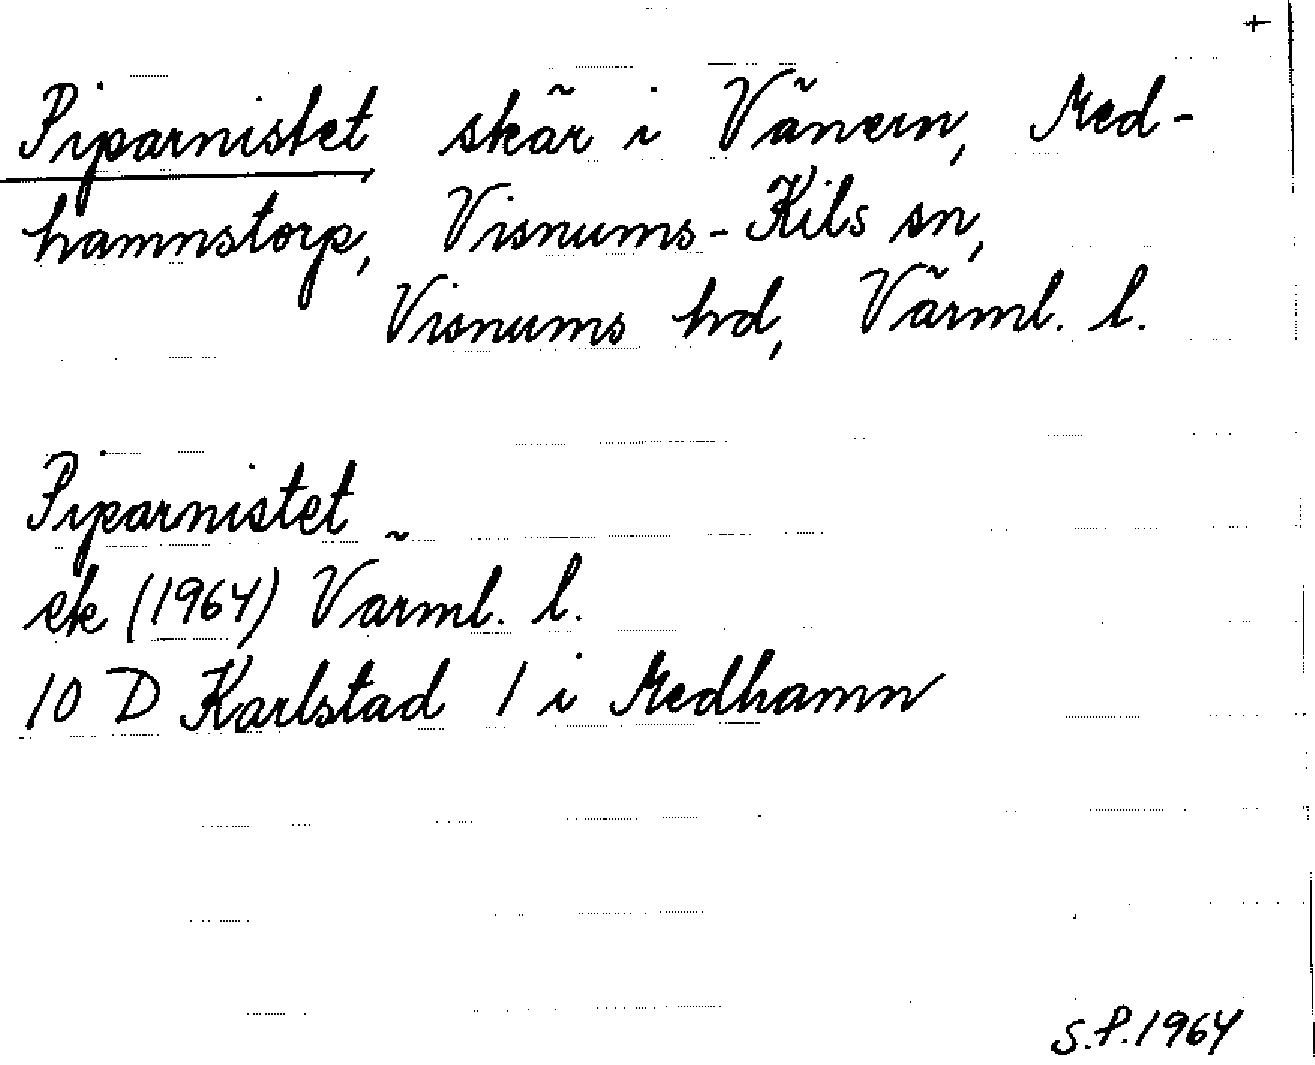 +
Piparnistet skär i Vänern, Med-
hamnstorp, Visnums-Kils sn,
Visnums hd, Värml. l.
Piparnistet
ek (1964) Värml. l.
10 D Karlstad 1 i Medhamn
S.P.1964